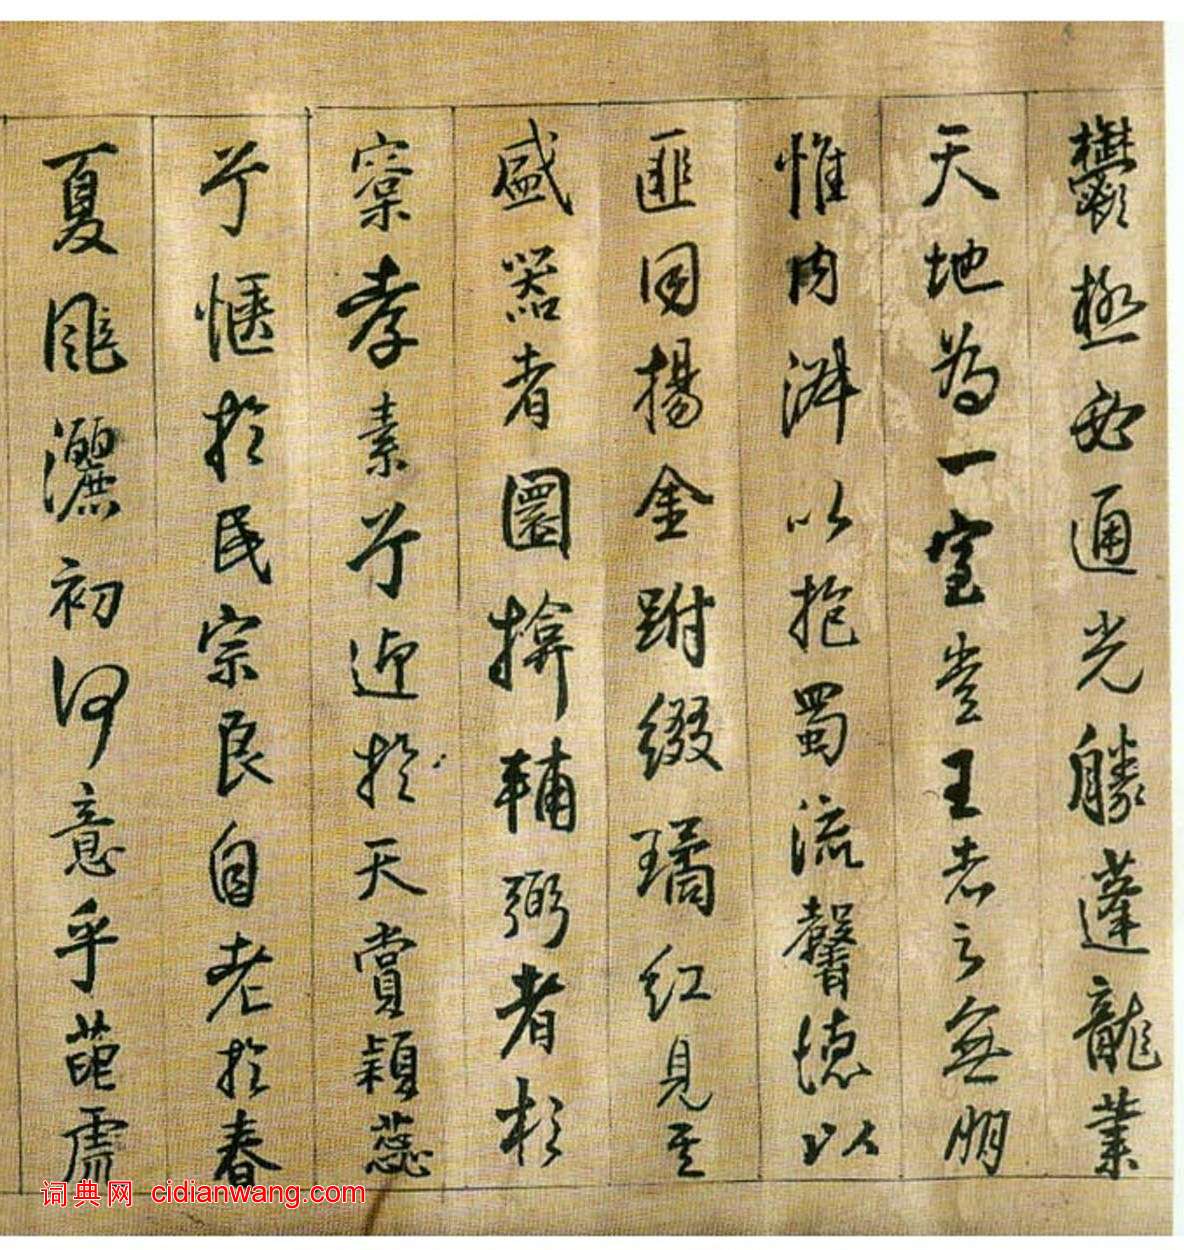 鬱極祕通光勝蓬龍業
天地為一室堂王者之無朋
惟肉湃以抱蜀流馨德以
匪因揚金跗綴璚紅見至
盛器者園揜輔弼者杉
寀孝素兮迎於天賞穎蕊
兮愜於民宗良自老於春
夏颭灑初何意乎葩
词典网 cidianwang.com